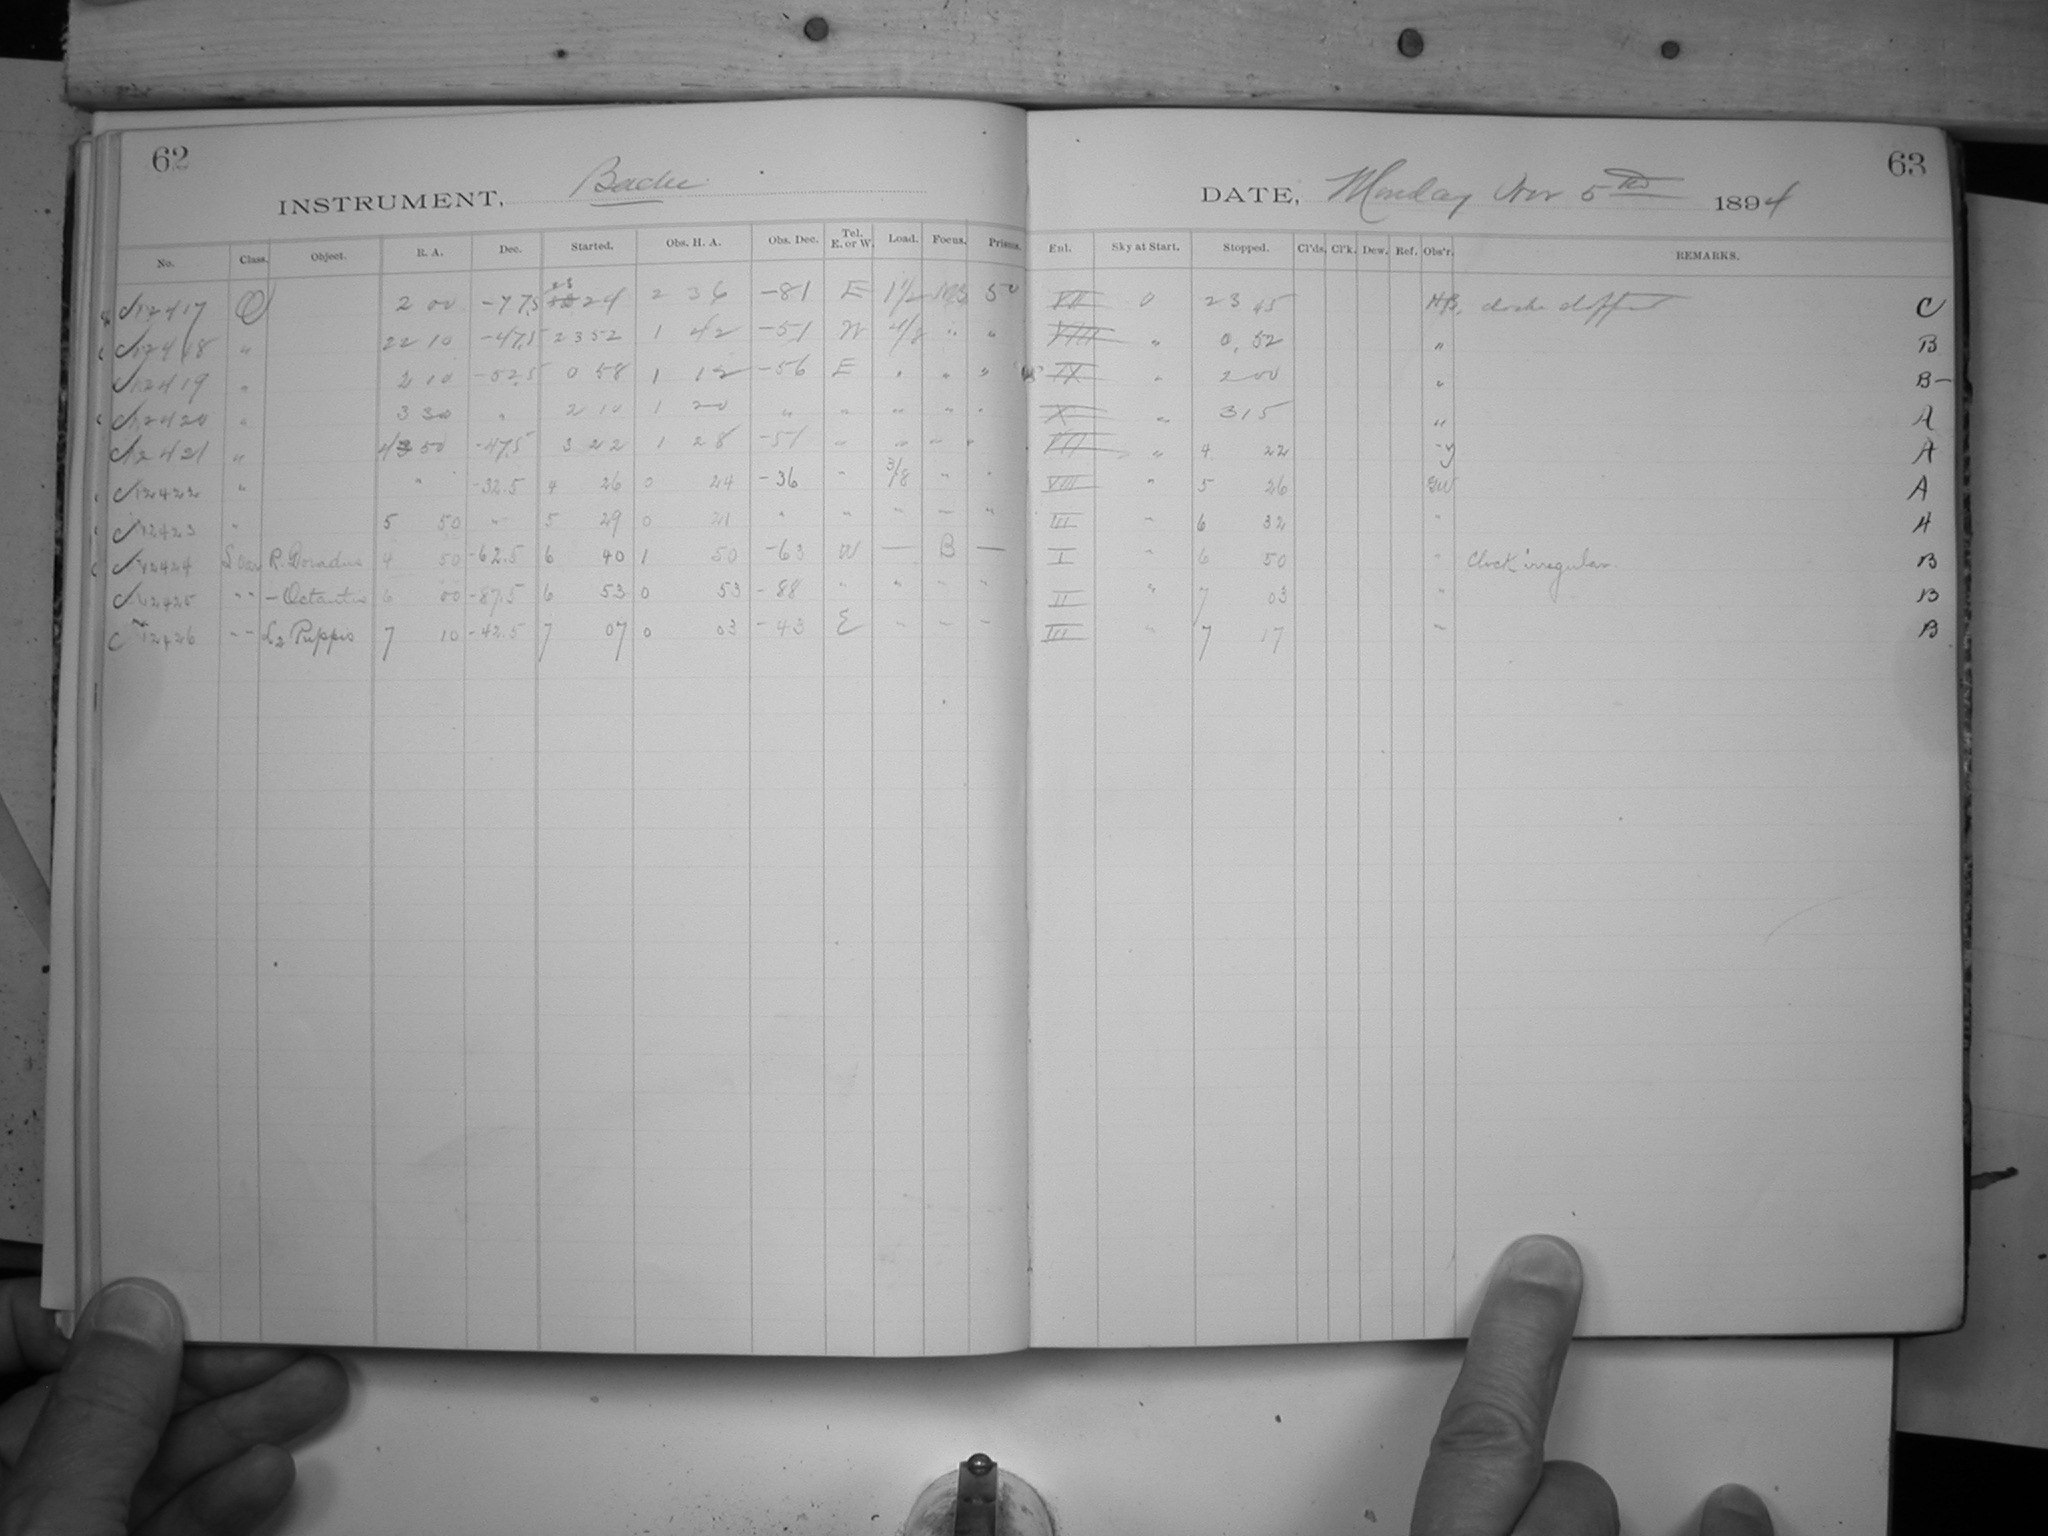 62
INSTRUMENT, Bache
No. Class. Object. R. A. Dec. Started. Obs. H. A. Obs. Dec. Tel. E. or W. Load. Focus. Prisms.
C 12417 O 2 00 -77.5 23 24 2 36 -81 E 1 1/2 50
C 12418 " 22 10 -47.5 23 52 1 42 -51 W 4/8 " "
C 12419 " 2 10 -52.5 0 58 1 12 -56 E " " "
C 12420 " 3 30 " 2 10 1 20 " " " " "
C 12421 " 4 50 -47.5 3 22 1 28 -51 " " " "
C 12422 " " -32.5 4 26 0 24 -36 " 3/8 " "
C 12423 " 5 50 " 5 29 0 21 " " " " "
C 12424 S Var R. Doradus 4 50 -62.5 6 40 1 50 -63 W — B —
C 12425 " " — Octantis 6 00 -87.5 6 53 0 53 -88 " " " "
C 12426 " " L2 Puppis 7 10 -42.5 7 07 0 03 -43 E " " "
63
DATE, Monday Nov 5th 1894
Enl. Sky at Start. Stopped. Cl'ds. Cl'k. Dew. Ref. Obs'r. REMARKS.
VII 0 23 45 HB. C
VIII " 0 52 " B
IX " 2 00 " B-
X " 3 15 " A
VII " 4 22 A
VIII " 5 26 A
III " 6 32 " A
I " 6 50 " Clock irregular. B
II " 7 03 " B
III " 7 17 " B